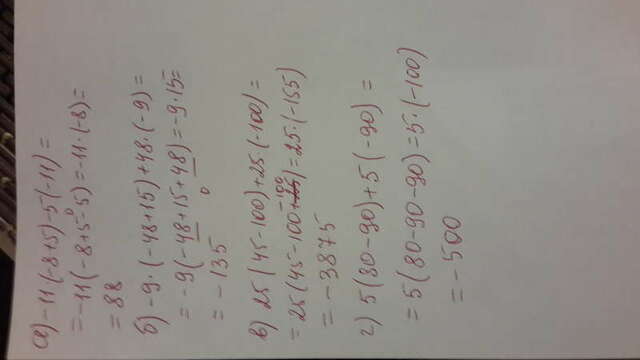 а) -11·(-8+5)-5(-11)=
=-11(-8+5-5)=-11·(-8)=
=88
б) -9·(-48+15)+48·(-9)=
=-9(-48+15+48)=-9·15=
=-135
в) 25(45-100)+25·(-100)=
=25(45-100-100)=25·(-155)
=-3875
г) 5(80-90)+5(-90)=
=5(80-90-90)=5·(-100)
=-500